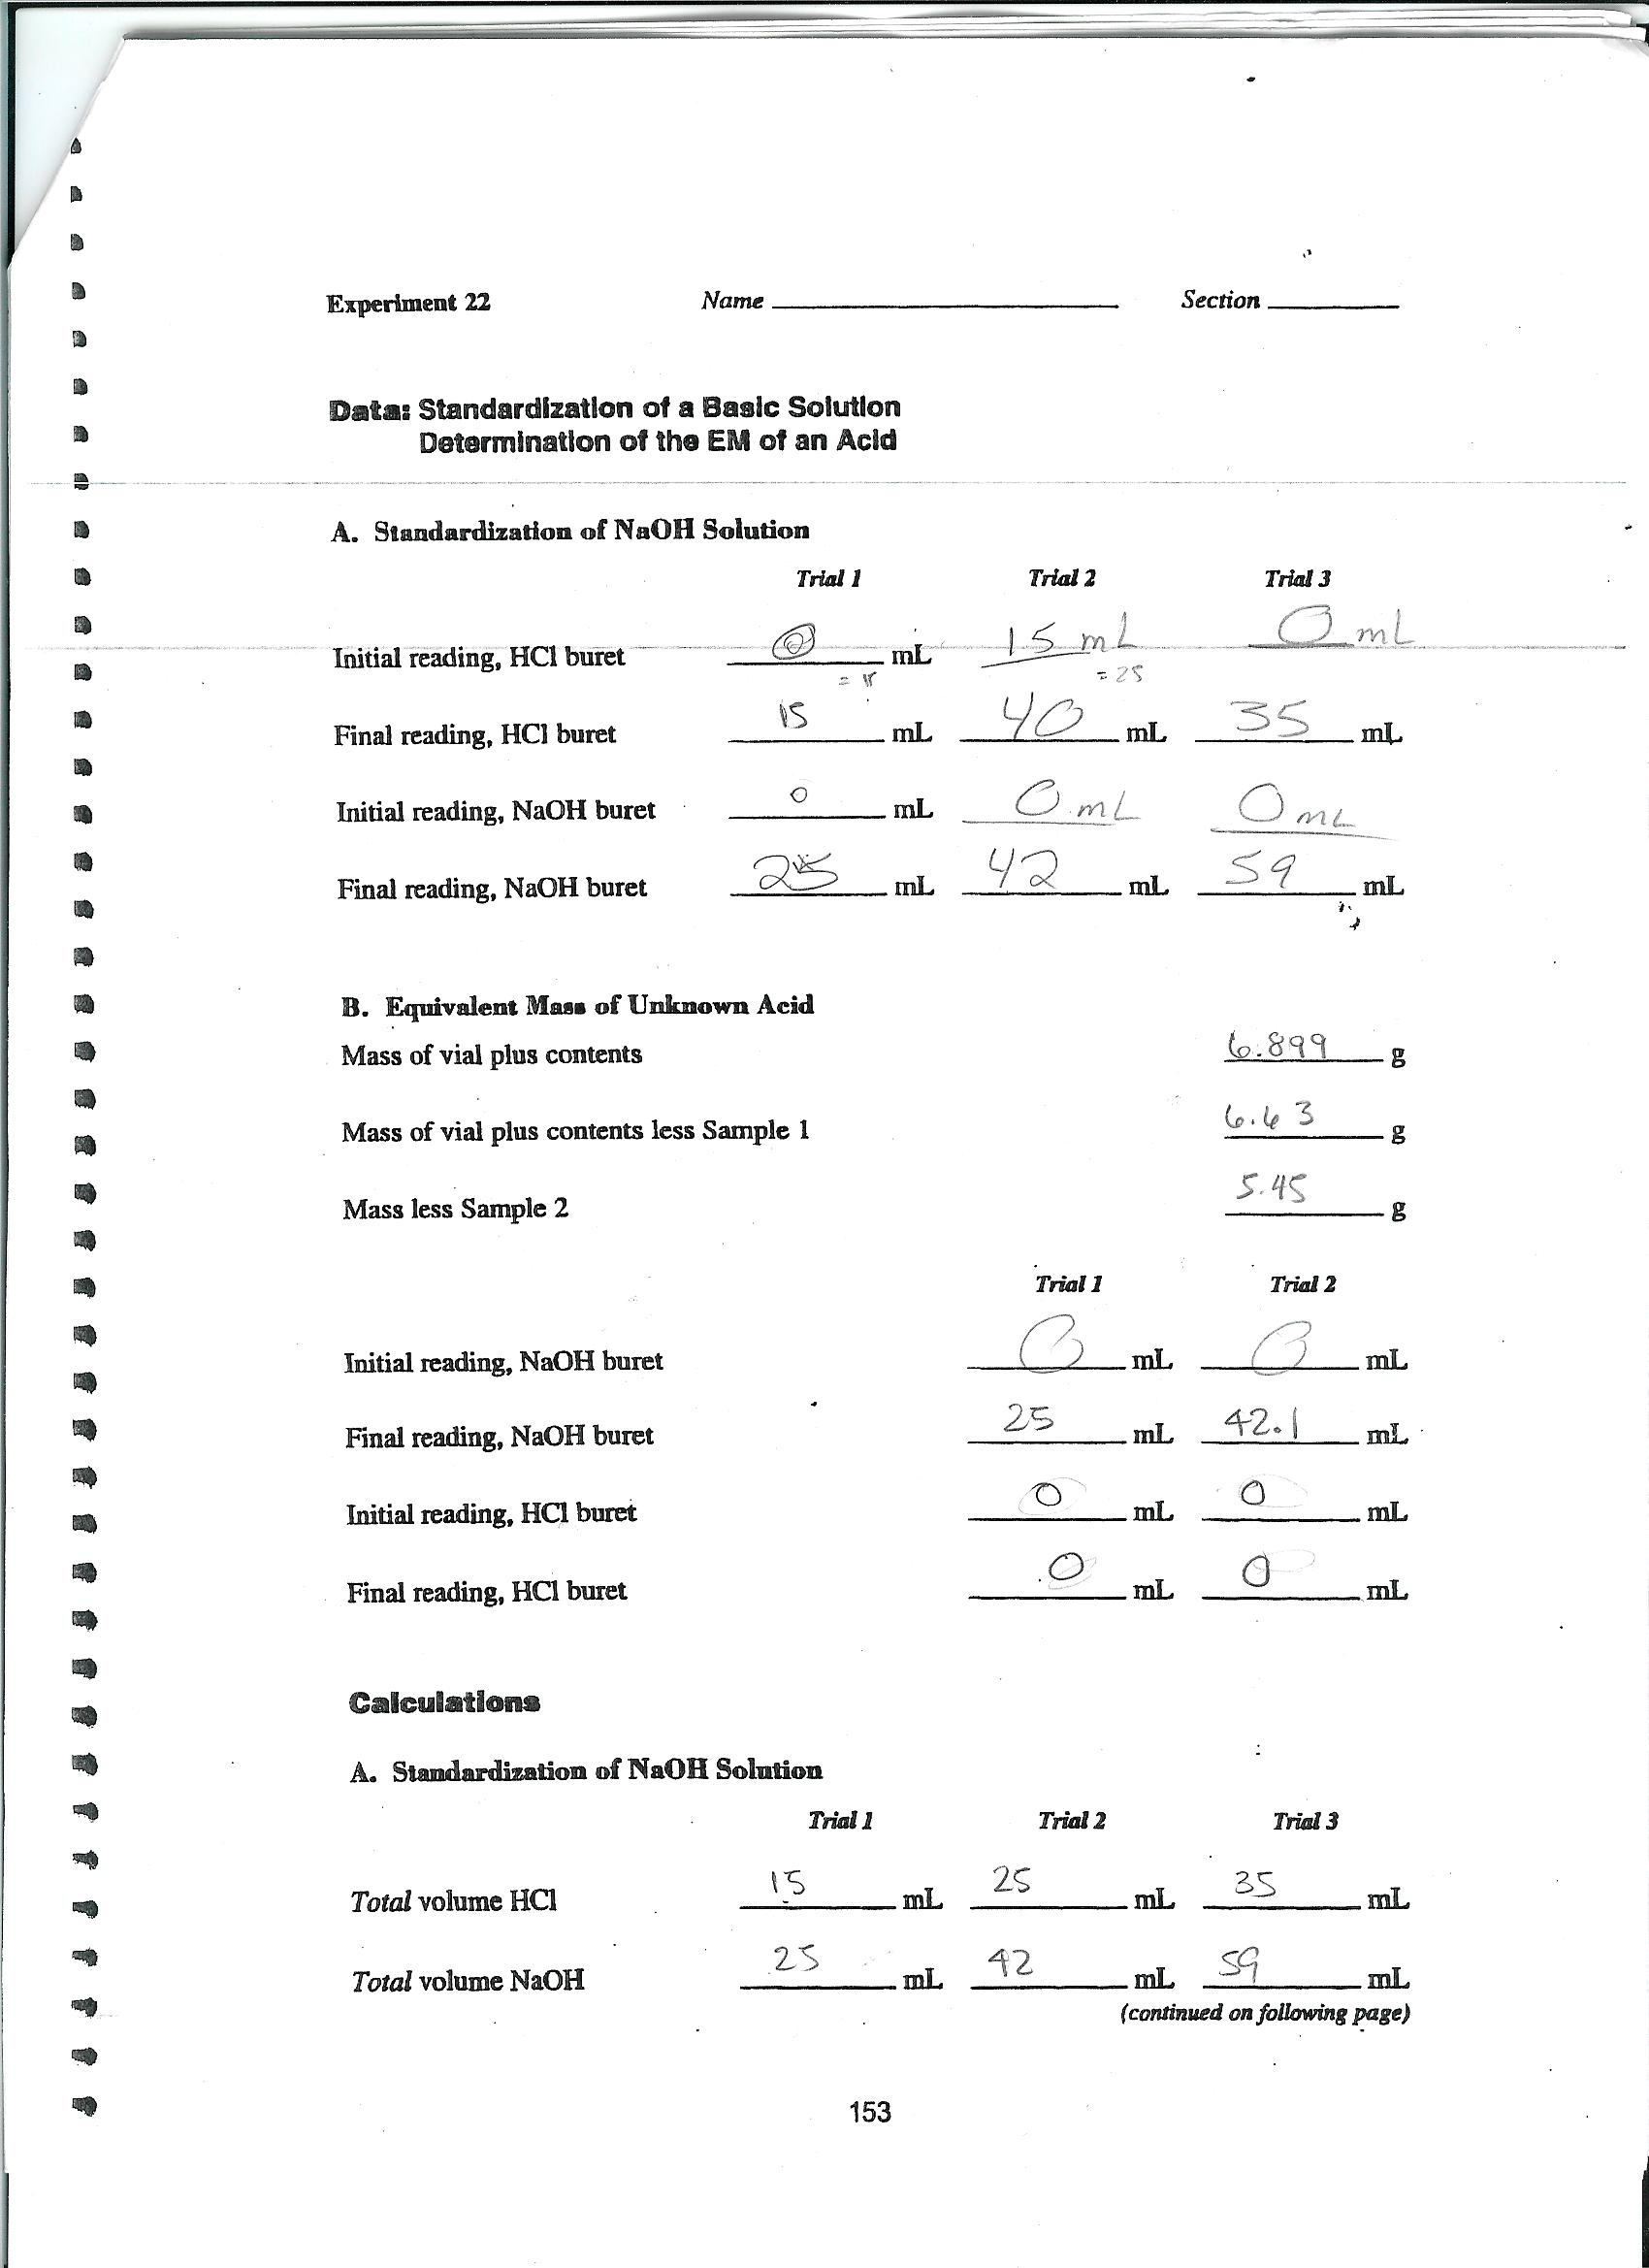 Experiment 22 Name Section
Data: Standardization of a Basic Solution
Determination of the EM of an Acid
A. Standardization of NaOH Solution
Trial 1 Trial 2 Trial 3
Initial reading, HCl buret 0 mL 15 mL 0 mL
= 15 = 25
Final reading, HCl buret 15 mL 40 mL 35 mL
Initial reading, NaOH buret 0 mL 0 mL 0 mL
Final reading, NaOH buret 25 mL 42 mL 59 mL
B. Equivalent Mass of Unknown Acid
Mass of vial plus contents 6.899 g
Mass of vial plus contents less Sample 1 6.63 g
Mass less Sample 2 5.45 g
Trial 1 Trial 2
Initial reading, NaOH buret 0 mL 0 mL
Final reading, NaOH buret 25 mL 42.1 mL
Initial reading, HCl buret 0 mL 0 mL
Final reading, HCl buret 0 mL 0 mL
Calculations
A. Standardization of NaOH Solution
Trial 1 Trial 2 Trial 3
Total volume HCl 15 mL 25 mL 35 mL
Total volume NaOH 25 mL 42 mL 59 mL
(continued on following page)
153